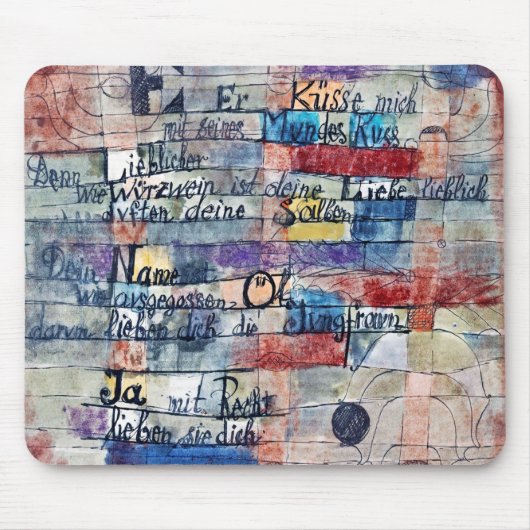 Er Küsse mich
mit seines Mundes Kuss
Denn Lieblicher
wie Würzwein ist deine Liebe lieblich
duften deine Salben
Dein Name ist
wie ausgegossenes Öl
darum lieben dich die Jungfrauen
Ja mit Recht
lieben sie dich